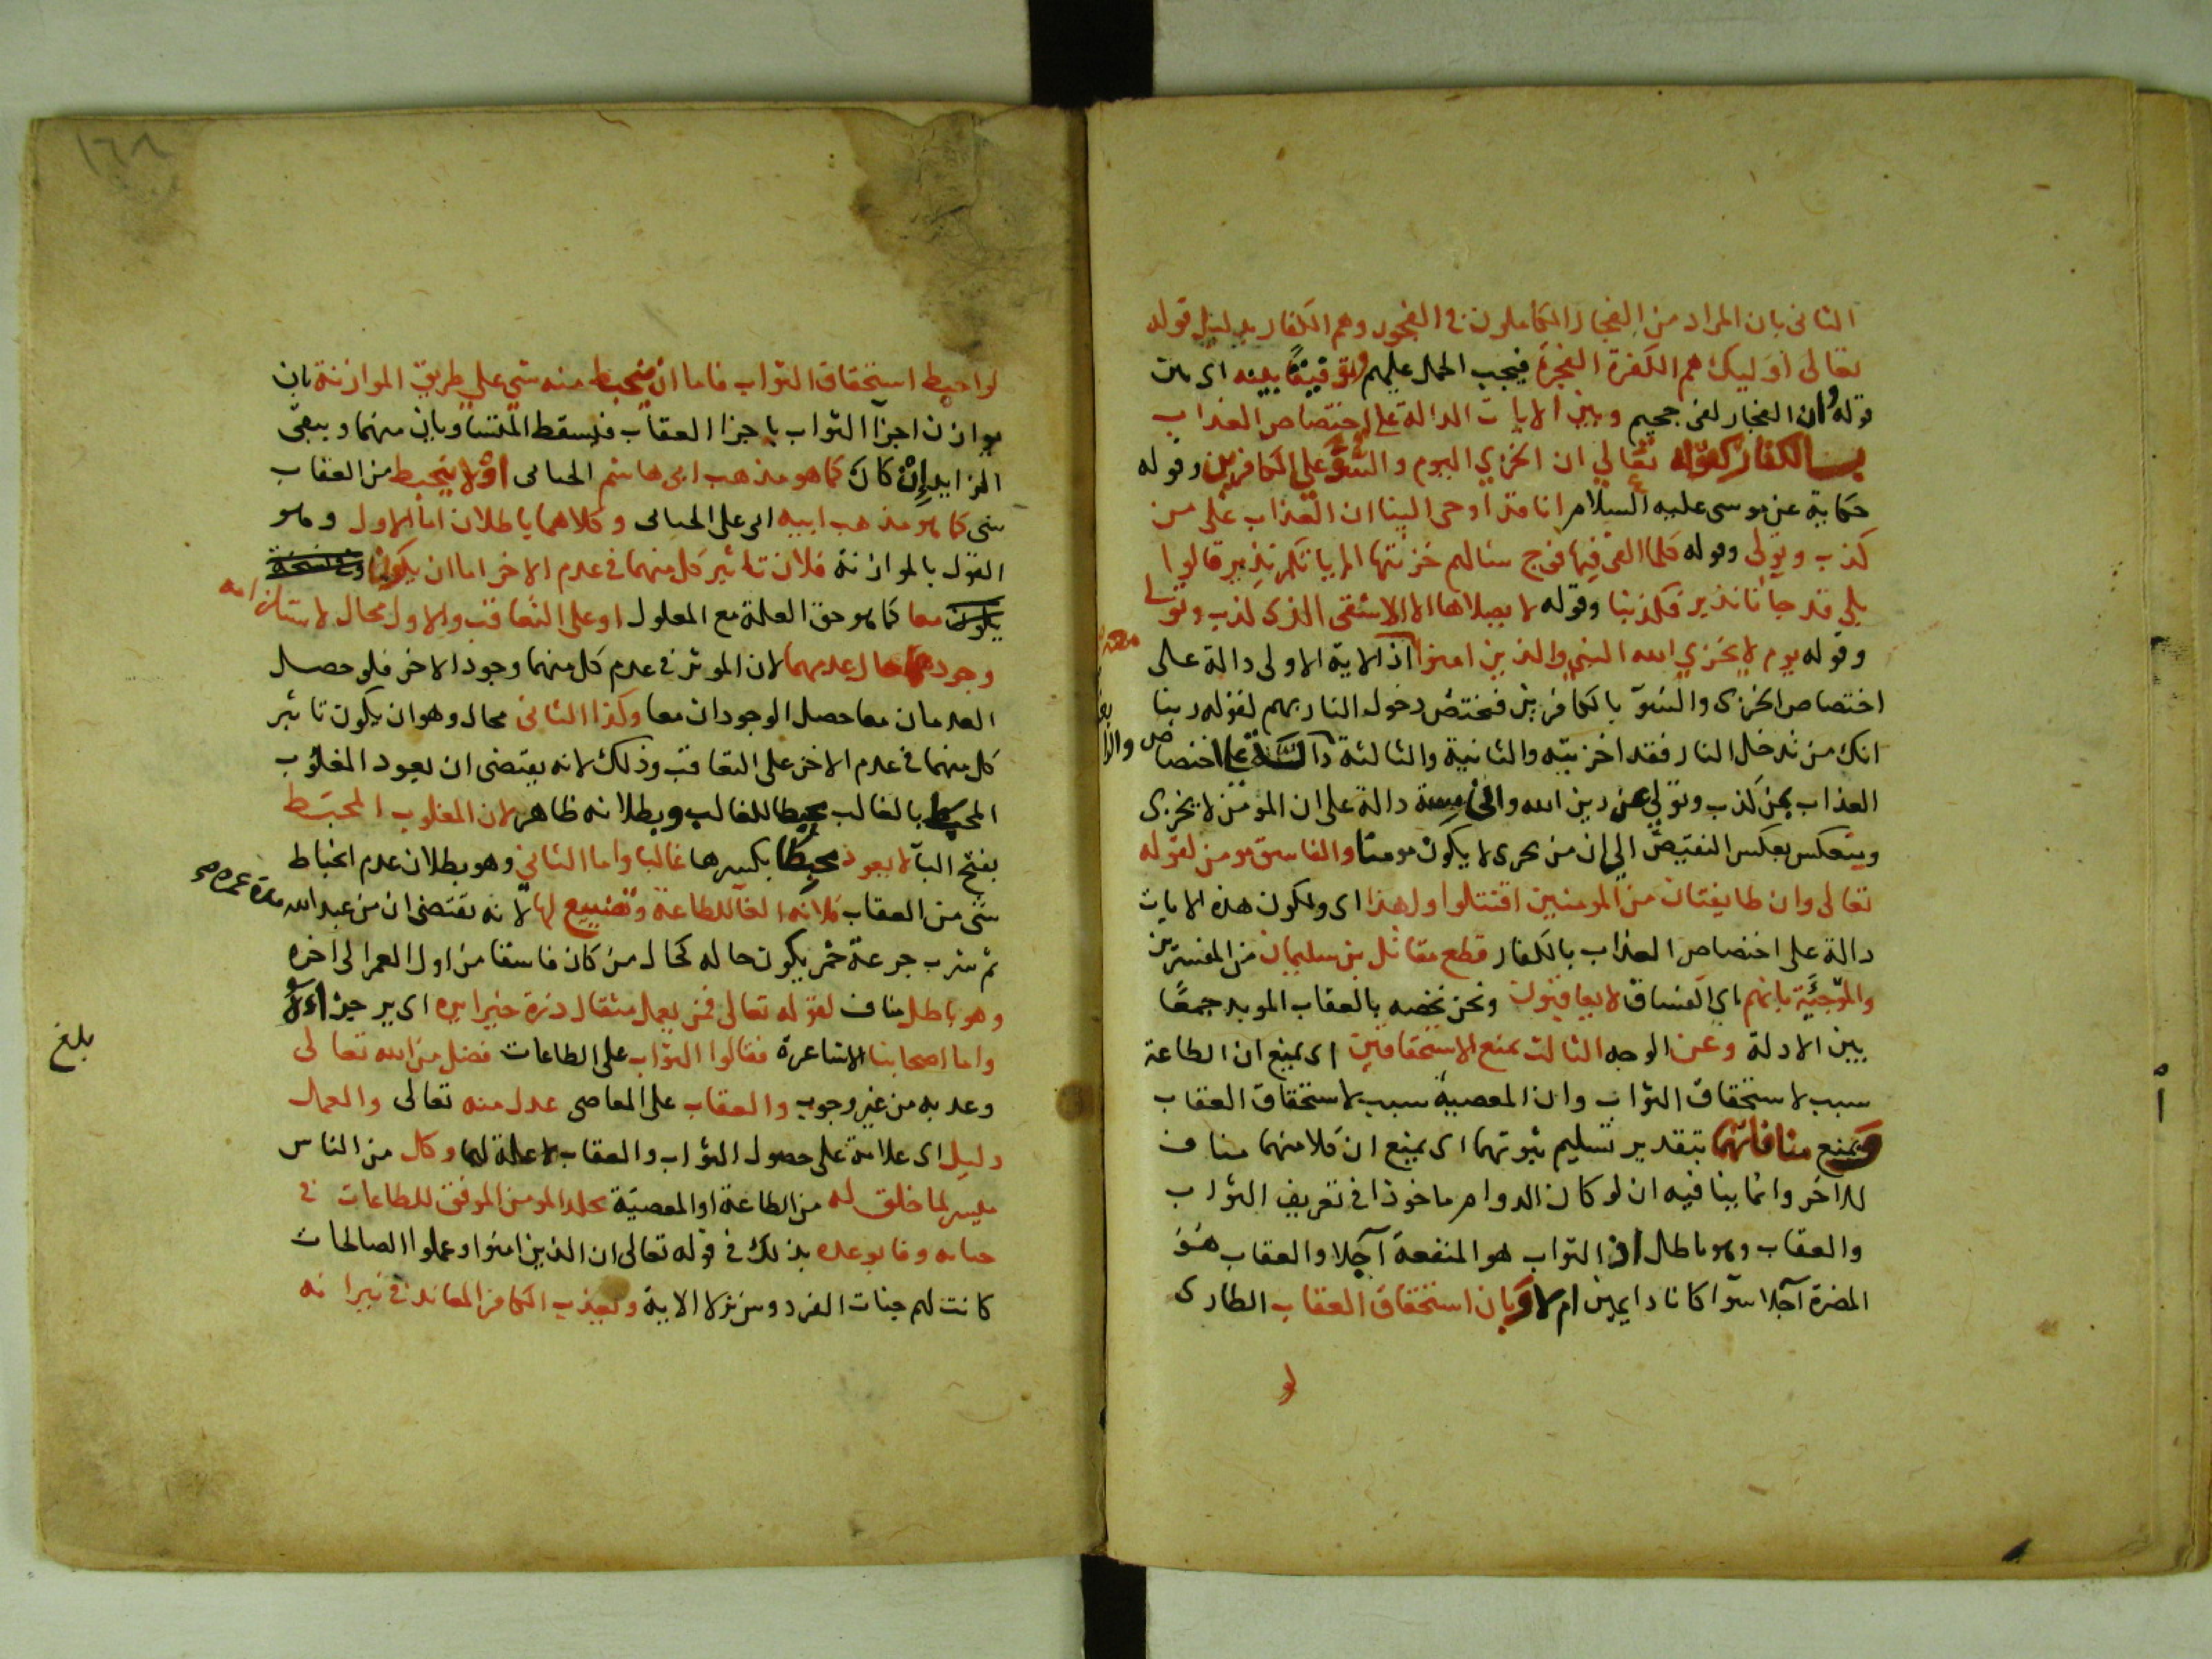 الثانى بان المراد من الفجار الكاملون فى الفجور وهم الكفار بدليل قوله
تعالى اوليك هم الكفرة الفجرة فيجب الحمل عليهم توفيقا بينه اى بين
قوله وان الفجار لفى جحيم وبين الايات الدالة على اختصاص العذاب
بالكفار كقوله تعالى ان الخزي اليوم والسوء على الكافرين وقوله
حكاية عن موسى عليه السلام انا قد اوحى الينا ان العذاب على من
كذب وتولى وقوله كلما القى فيها فوج سئالهم خزنتها الم ياتكم نذير قالوا
بلى قد جآنا نذير فكذبنا وقوله لا يصلاها الا الاشقى الذى كذب وتولى
وقوله يوم لا يخزي الله النبي والذين امنوا معه اذ الاية الاولى دالة على
اختصاص الخزى والسوء بالكافرين فنختص دخول النار بهم لقوله ربنا
انك من تدخل النار فقد اخزيته والثانية والثالثة والرابعة على اختصاص
العذاب بمن كذب وتولى عن دين الله والخامسة دالة على ان المؤمن لا يخزى
وينعكس بعكس النقيض الى ان من يخزى لا يكون مومنا والفاسق مومن لقوله
تعالى وان طايفتان من المومنين اقتتلوا ولهذا اى ولكون هذه الايات
دالة على اختصاص العذاب بالكفار قطع مقاتل بن سليمان من المفسرين
والمرجيّة بانهم اى الفساق لا يعاقبون ونحن نخصه بالعقاب الموبد جمعًا
بين الادلة وعن الوجه الثالث بمنع الاستحقاقين اى بمنع ان الطاعة
سبب لاستحقاق الثواب وان المعصية سبب لاستحقاق العقاب
وبمنع منافاتهما بتقدير تسليم ثبوتهما اى بمنع ان كلا منهما مناف
للاخر وانما ينافيه ان لو كان الدوام ماخوذا فى تعريف الثواب
والعقاب وهو باطل اذ الثواب هو المنفعة آجلا والعقاب هو
المضرة آجلا سوآ كانا دايمين ام لا وبان استحقاق العقاب الطارى
لو
١٦٨
لو احبط استحقاق الثواب فاما ان ينحبط منه شي على طريق الموازنة بان
يوازن اجزآ الثواب باجزا العقاب فيسقط المتساويان منهما ويبقى
الزايد ان كان كما هو مذهب ابى هاشم الجبائى او لا ينحبط من العقاب
شى كما هو مذهب ابيه ابى على الجبائى وكلاهما باطلان اما الاول وهو
القول بالموازنة فلان تاثير كل منهما فى عدم الاخر اما ان يكونا
معا كما هو حق العلة مع المعلول او على التعاقب والاول محال لاستلزامه
وجودهما حال عدمهما لان الموثر فى عدم كل منهما وجود الاخر فلو حصل
العدمان معا حصل الوجودان معا وكذا الثانى محال وهو ان يكون تاثير
كل منهما فى عدم الاخر على التعاقب وذلك لانه يقتضى ان يعود المغلوب
المحبط بالغالب محبطا للغالب وبطلانه ظاهر لان المغلوب المحبَط
بفتح البآ لا يعود محبِطا بكسرها غالبا واما الثانى وهو بطلان عدم انحباط
شى من العقاب فلانه الغآ للطاعة وتضييع لها لانه يقتضى ان من عبد الله مدة عمره
ثم شرب جرعة خمر يكون حاله كحال من كان فاسقا من اول العمر الى اخره
وهو باطل مناف لقوله تعالى فمن يعمل مثقال ذرة خيرا يره اى ير جزاءه
واما اصحابنا الاشاعرة فقالوا الثواب على الطاعات فضل من الله تعالى
وعد به من غير وجوب والعقاب على المعاصى عدل منه تعالى والعمل
دليل اى علامة على حصول الثواب والعقاب لا علة لهما وكل من الناس
ميسر لما خلق له من الطاعة او المعصية يخلد المومن الموفق للطاعات فى
جنانه وفا بوعده بذلك فى قوله تعالى ان الذين امنوا وعملوا الصالحات
كانت لهم جنات الفردوس نزلا الاية وتعذيب الكافر المعاند فى نيرانه
بلغ